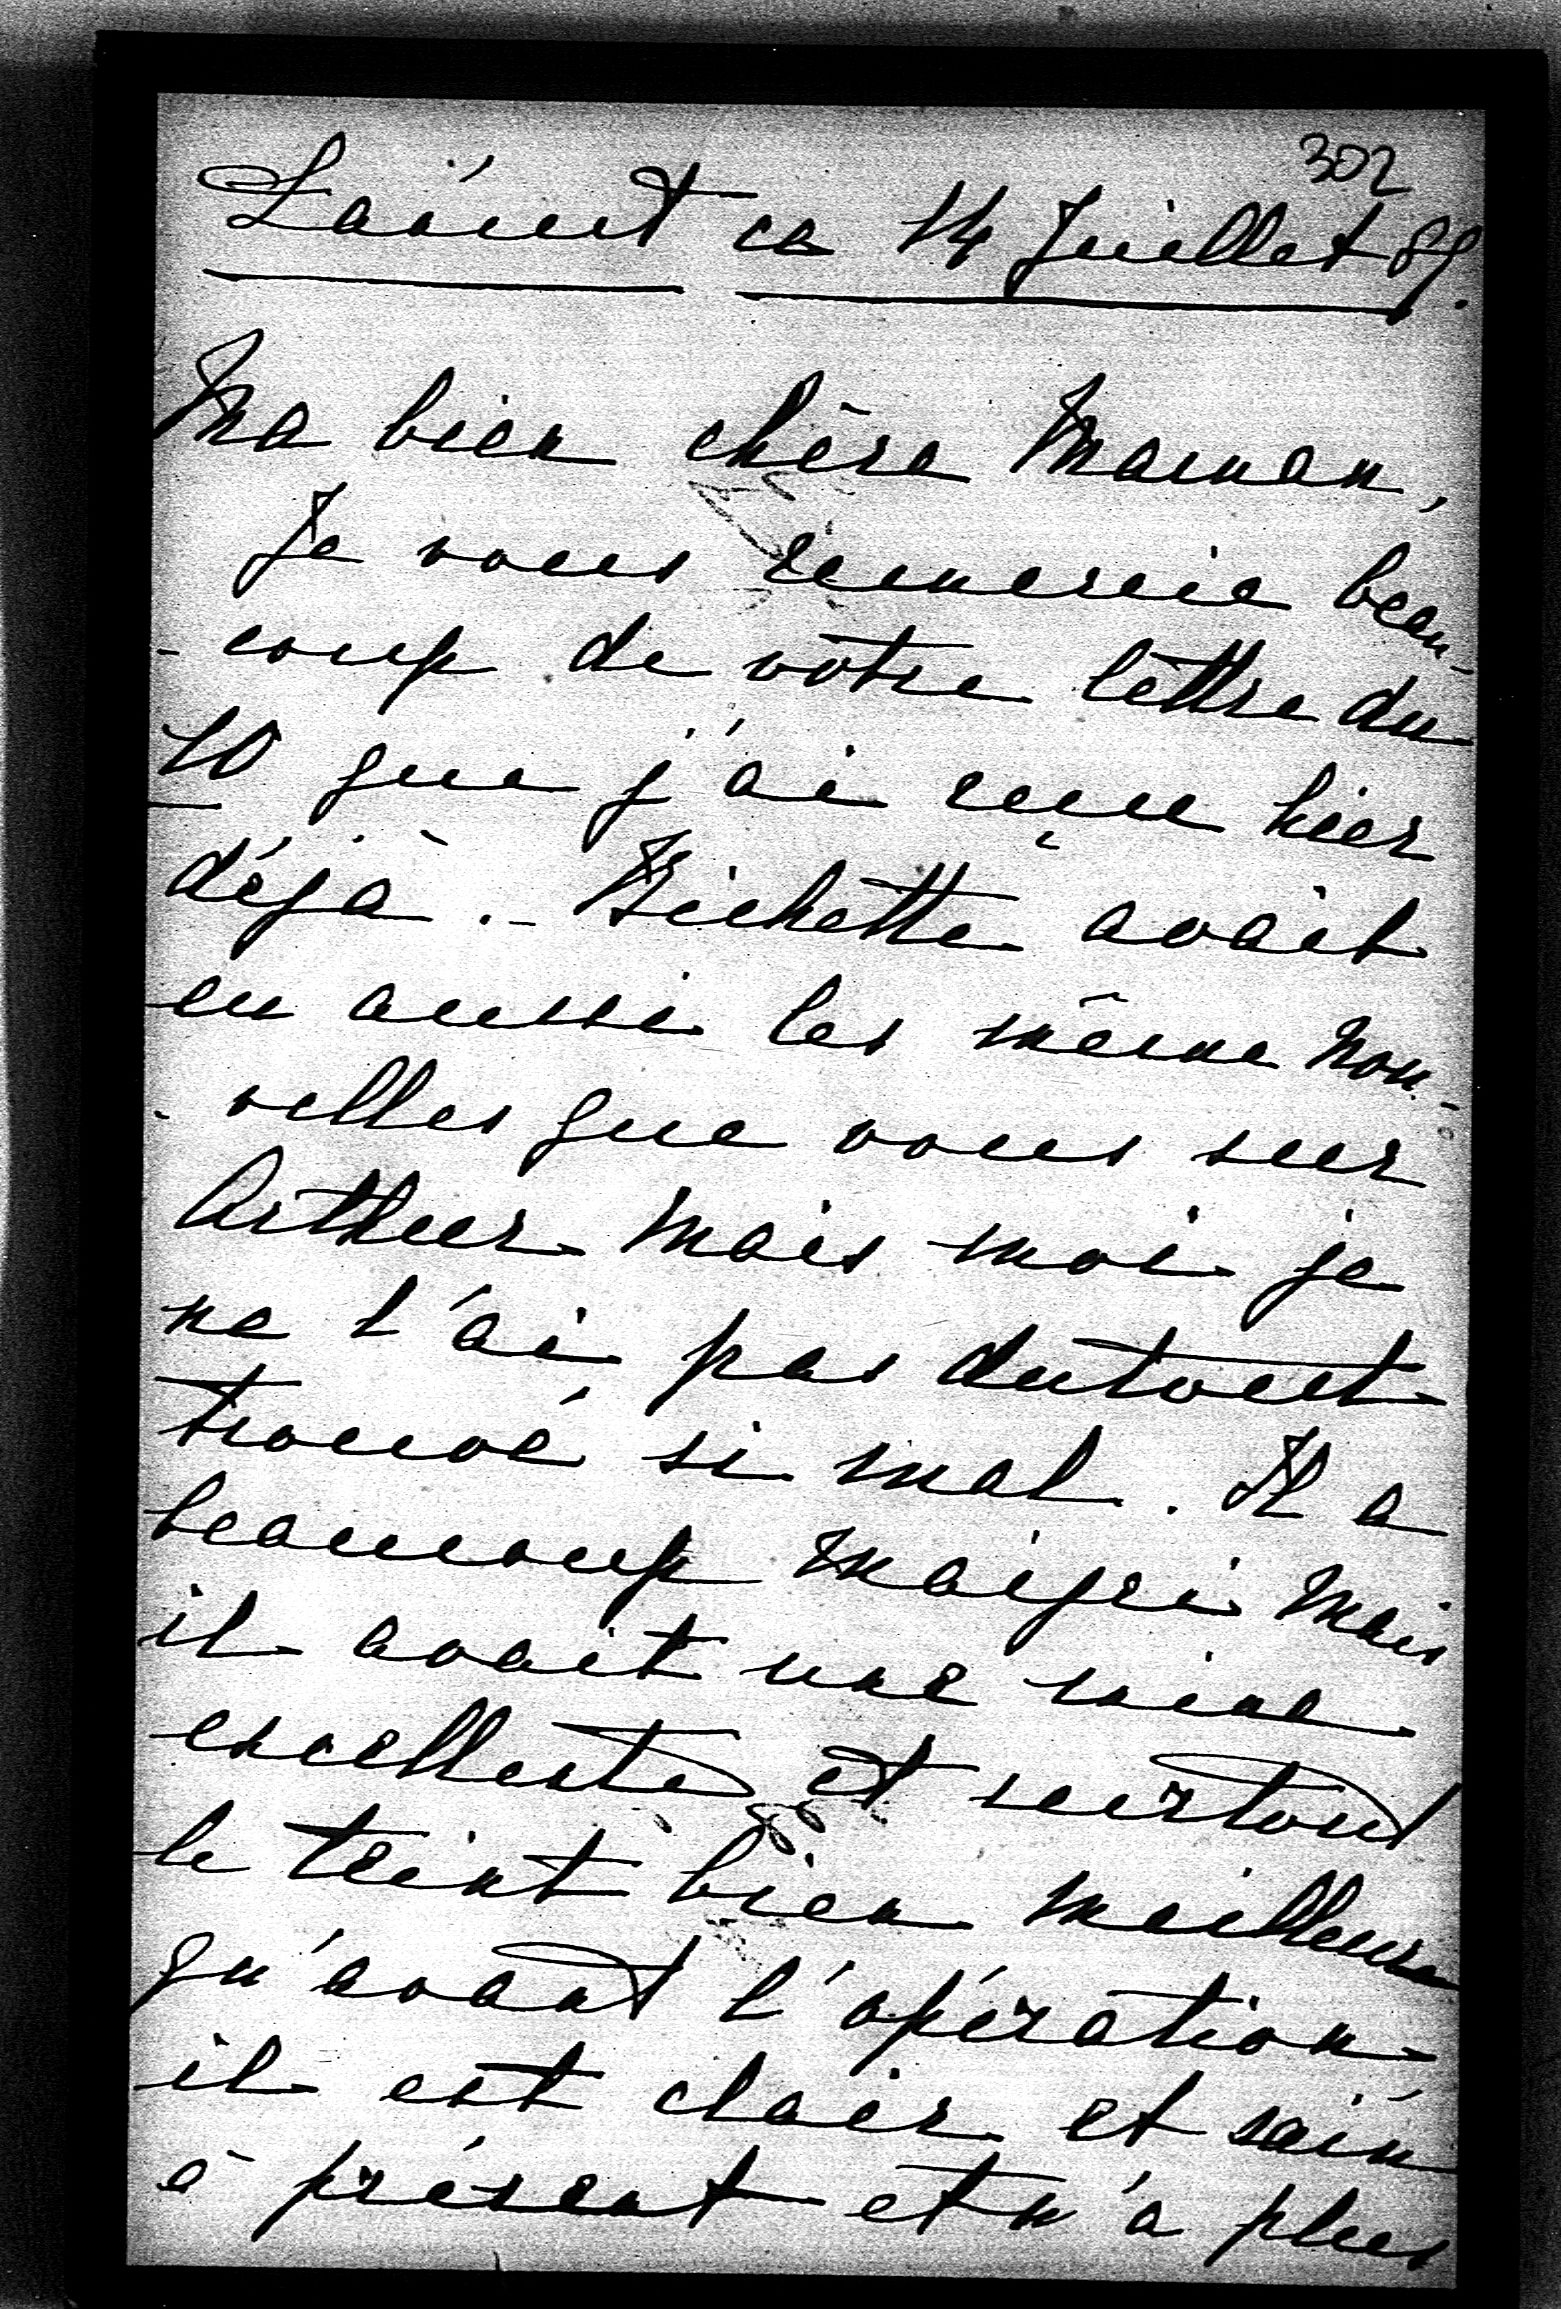 302
Laöust ce 14 Juillet 89.
Ma bien chère Maman,
Je vous remercie beau-
- coup de vôtre lettre du
10 que j'ai reçue hier
déjà. - Bichette avait
eu aussi les même nou-
- velles que vous sur
Arthur mais moi je
ne l'ai pas dutout
trouvé si mal. Il a
beaucoup maigri mais
il avait une mine
excellente et surtout
le teint bien meilleure
qu'avant l'opération
il est clair et sain
à présent et n'a plus